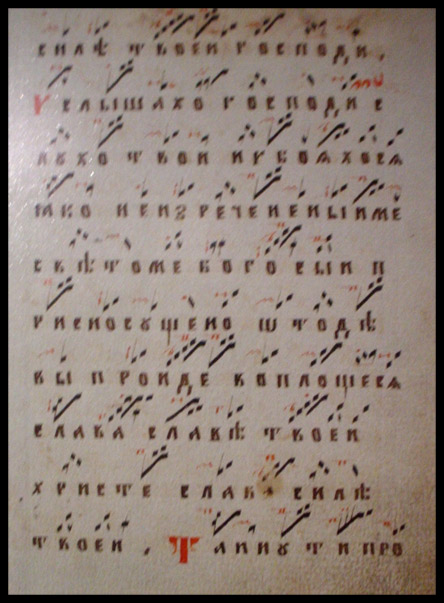 силѣ твоеи господи .
Услышахо господи с
лѹхо твои и ѹбояхося
ꙗко неизреченены име
свѣтоме бого сыи п
рисносѹщено ѿ тодѣ
вы проиде воплощеся
слава славѣ твоеи
христе слав силѣ
твоеи . Таинѹ ти про